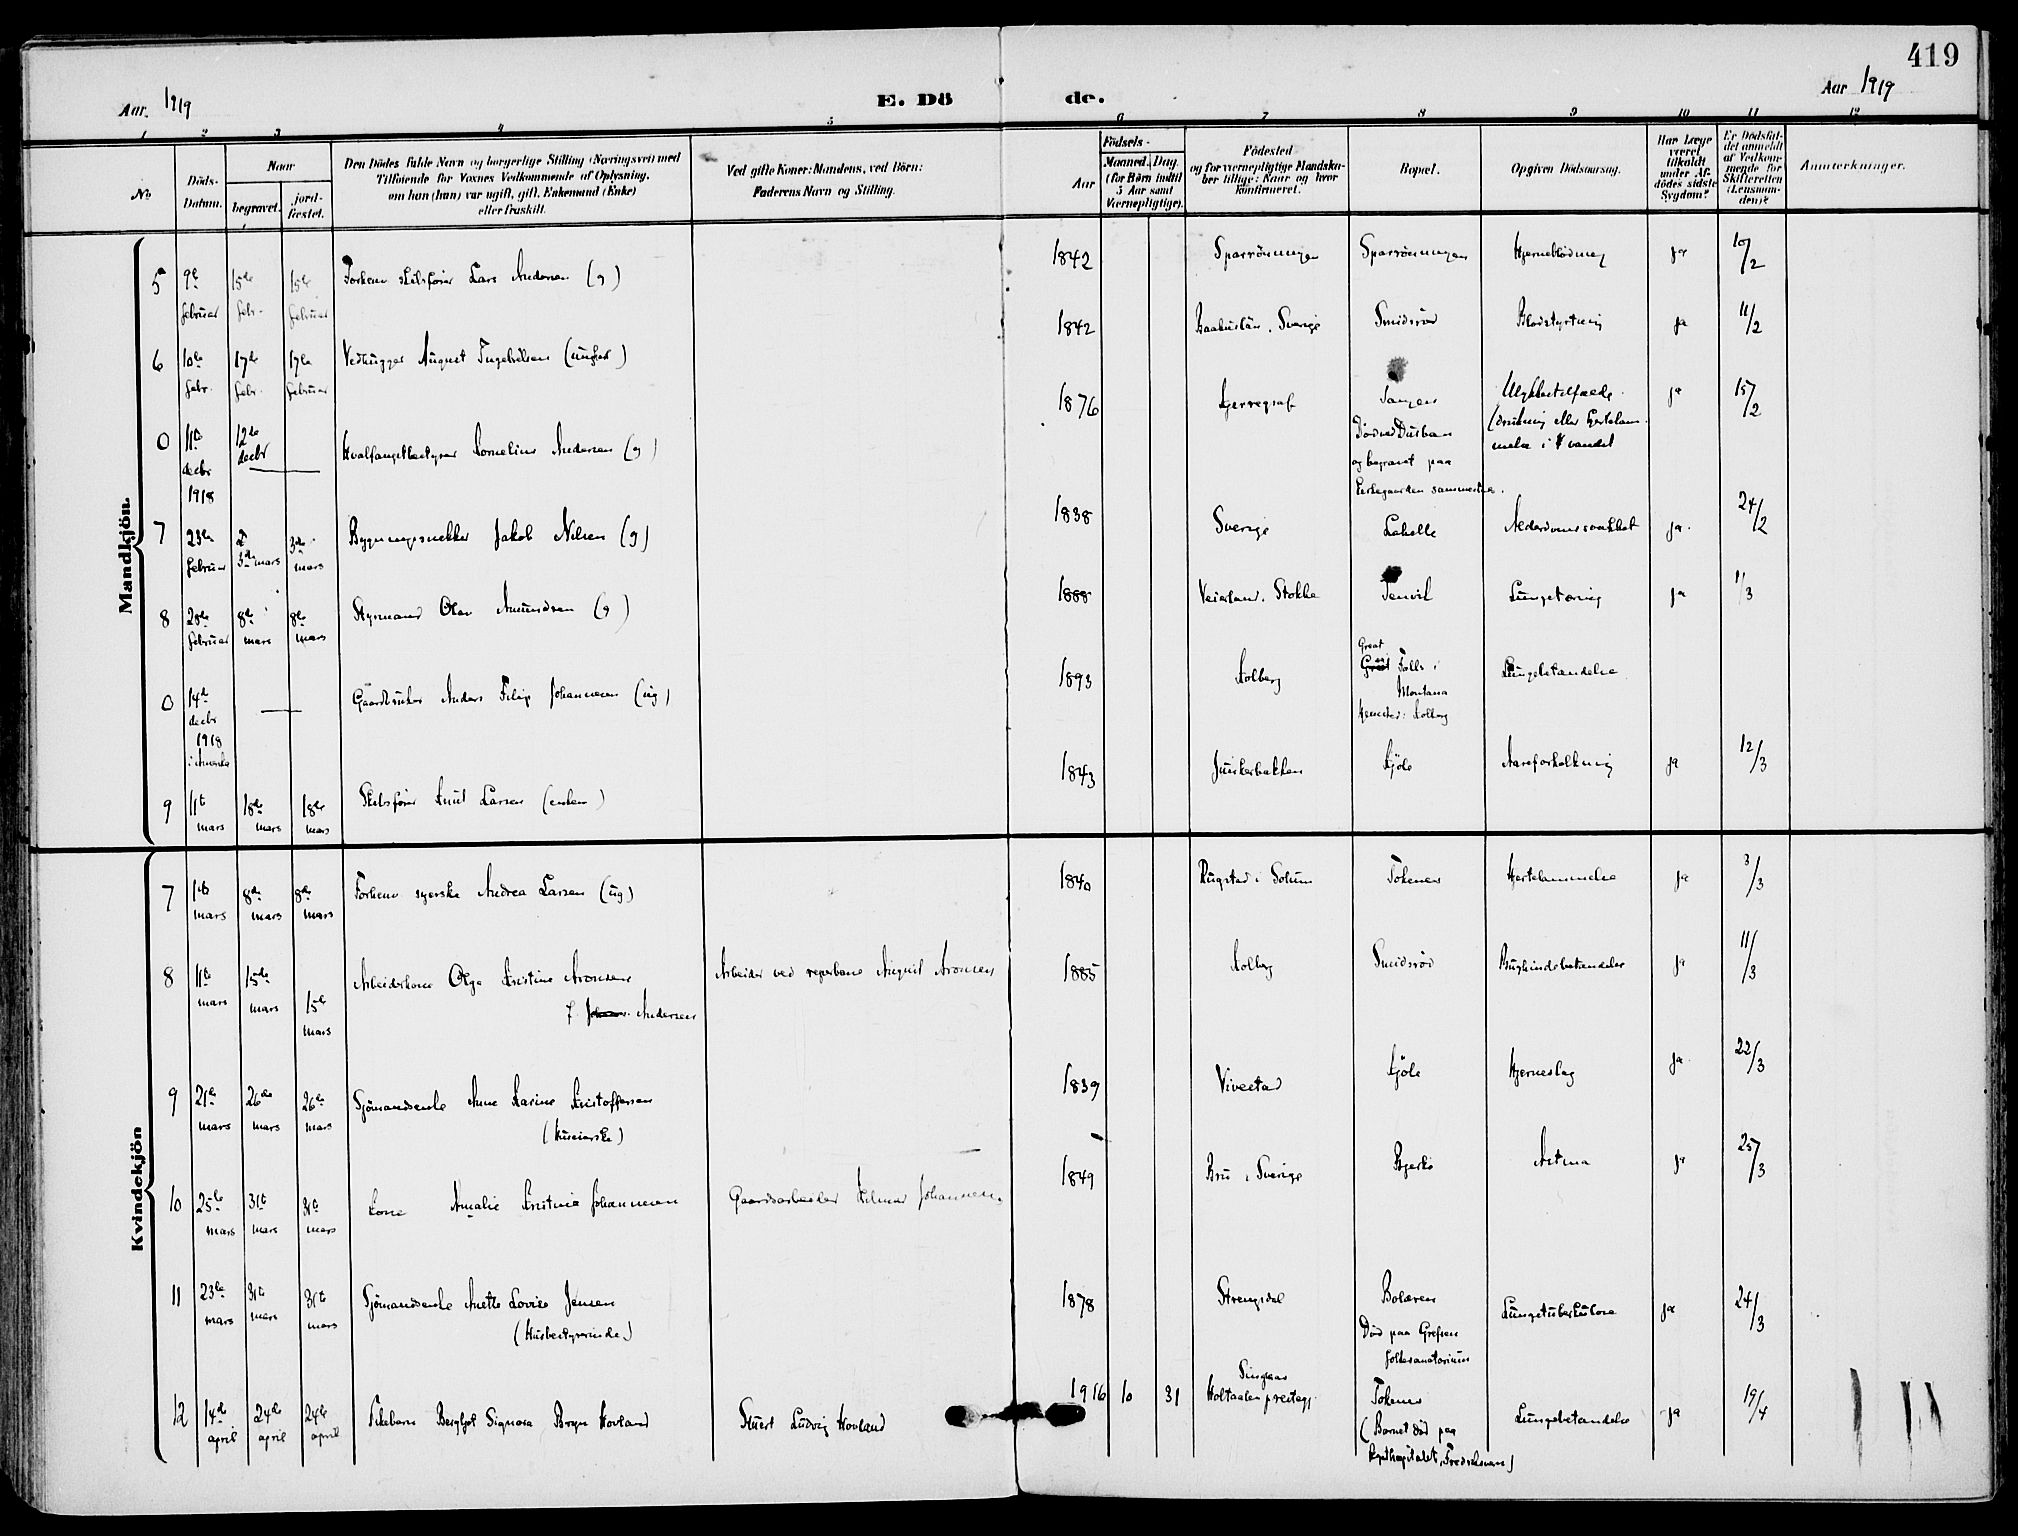 419
Aar 1919
E. Dö de.
Aar 1919
1 2 3 4 5 6 7 8 9 10 11 12
No
Döds-Datum.
Naar
begravet.
jord-fæstet.
Den Dödes fulde Navn og borgerlige Stilling (Næringsvei) med
Tilföiende for Voxnes Vedkommende af Oplysning,
om han (hun) var ugift, gift, Enkemand (Enke)
eller fraskilt.
Ved gifte Koner: Mandens, ved Börn:
Faderens Navn og Stilling.
Födsels-
Aar
Maaned. Dag.
(for Börn indtil
5 Aar samt
Værnepligtige).
Födested
og for værnepligtige Mandska-
ber tillige: Naar og hvor
konfirmeret.
Bopæl.
Opgiven Dödsaarsag.
Har Læge
været
tilkaldt
under Af-
dödes sidste
Sygdom?
Er Dödsfal-
det anmeldt
af Vedkom-
mende for
Skifteretten
(Lensman-
den)?
Anmerkninger.
Mandkjön.
5 9de februar 15de febr. 15de februar Forhenv skibsfører Lars Andersen (g) 1842 Hjerneblødning ja 10/2
6 10de febr. 17de febr. 17de februar Vedhugger August Ingebretsen (ungkar) 1842 Baahuslän, Sverige Smidsrød Blodstyrtning ja 11/2
0 11te decbr 1918 12de decbr — Hvalfangstbestyrer Kornelius Andersen (g) 1876 Tangen
Død ved Durban
og begravet paa
kirkegaarden sammesteds.
Ulykkestilfælde
(drukning eller hjertelam-
melse i vandet
ja 15/2
7 23de februar 3de mars 3de mars Bygningssnekker Jakob Nilsen (g) 1838 Sverige Labelle Alderdomssvakhet ja 24/2
8 28de februar 8de mars 8de mars Styrmand Olav Amundsen (g) 1888 Veierland, Stokke Tenvik Lungetæring ja 1/3
0 14de decbr 1918 i Amerika — Gaardbruker Anders Filip Johannessen (ug) 1893 Kolberg
Great Falls i
Montana
Hjemsted: Kolberg
Lungebetændelse
9 11te mars 18de mars 18de mars Skibsfører Knut Larsen (enkem) 1843 Junkerbakken Kjøle Aareforkalkning ja 12/3
Kvindekjön
7 1ste mars 8de mars 8de mars Forhenv syerske Andrea Larsen (ug) 1840 Rugstad i Solum Tokenes Hjertelammelse ja 3/3
8 11te mars 15de mars 15de mars Arbeiderkone Olga Kristine Aronsen
f. Andersen
Arbeider ved reperbane August Aronsen 1885 Kolberg Smidsrød Bughindebetændelse ja 11/3
9 21de mars 26de mars 26de mars Sjømandsenke Anne Karine Kristoffersen
(Husierske)
1839 Vivestad Kjøle Hjerneslag ja 22/3
10 25de mars 31te mars 31te mars Kone Amalie Kristine Johannessen Gaardsarbeider Hilmar Johannessen 1849 Bru i Sverige Bjerkø Astma ja 25/3
11 23de mars 31te mars 31te mars Sjømandsenke Anette Lovise Jensen
(Husbestyrerinde)
1878 Strengsdal Bolæren
Død paa Grefsen
folkesanatorium
Lungetuberkulose ja 24/3
12 14de april 24de april 24de april Pikebarn Bergljot Signora Bryn Hovland Stuert Ludvig Hovland 1916 10 31 Singsaas
Holtaalen prestegj. Tokenes
(Barnet død paa
, Fredriksværn)
Lungebetændelse ja 19/4